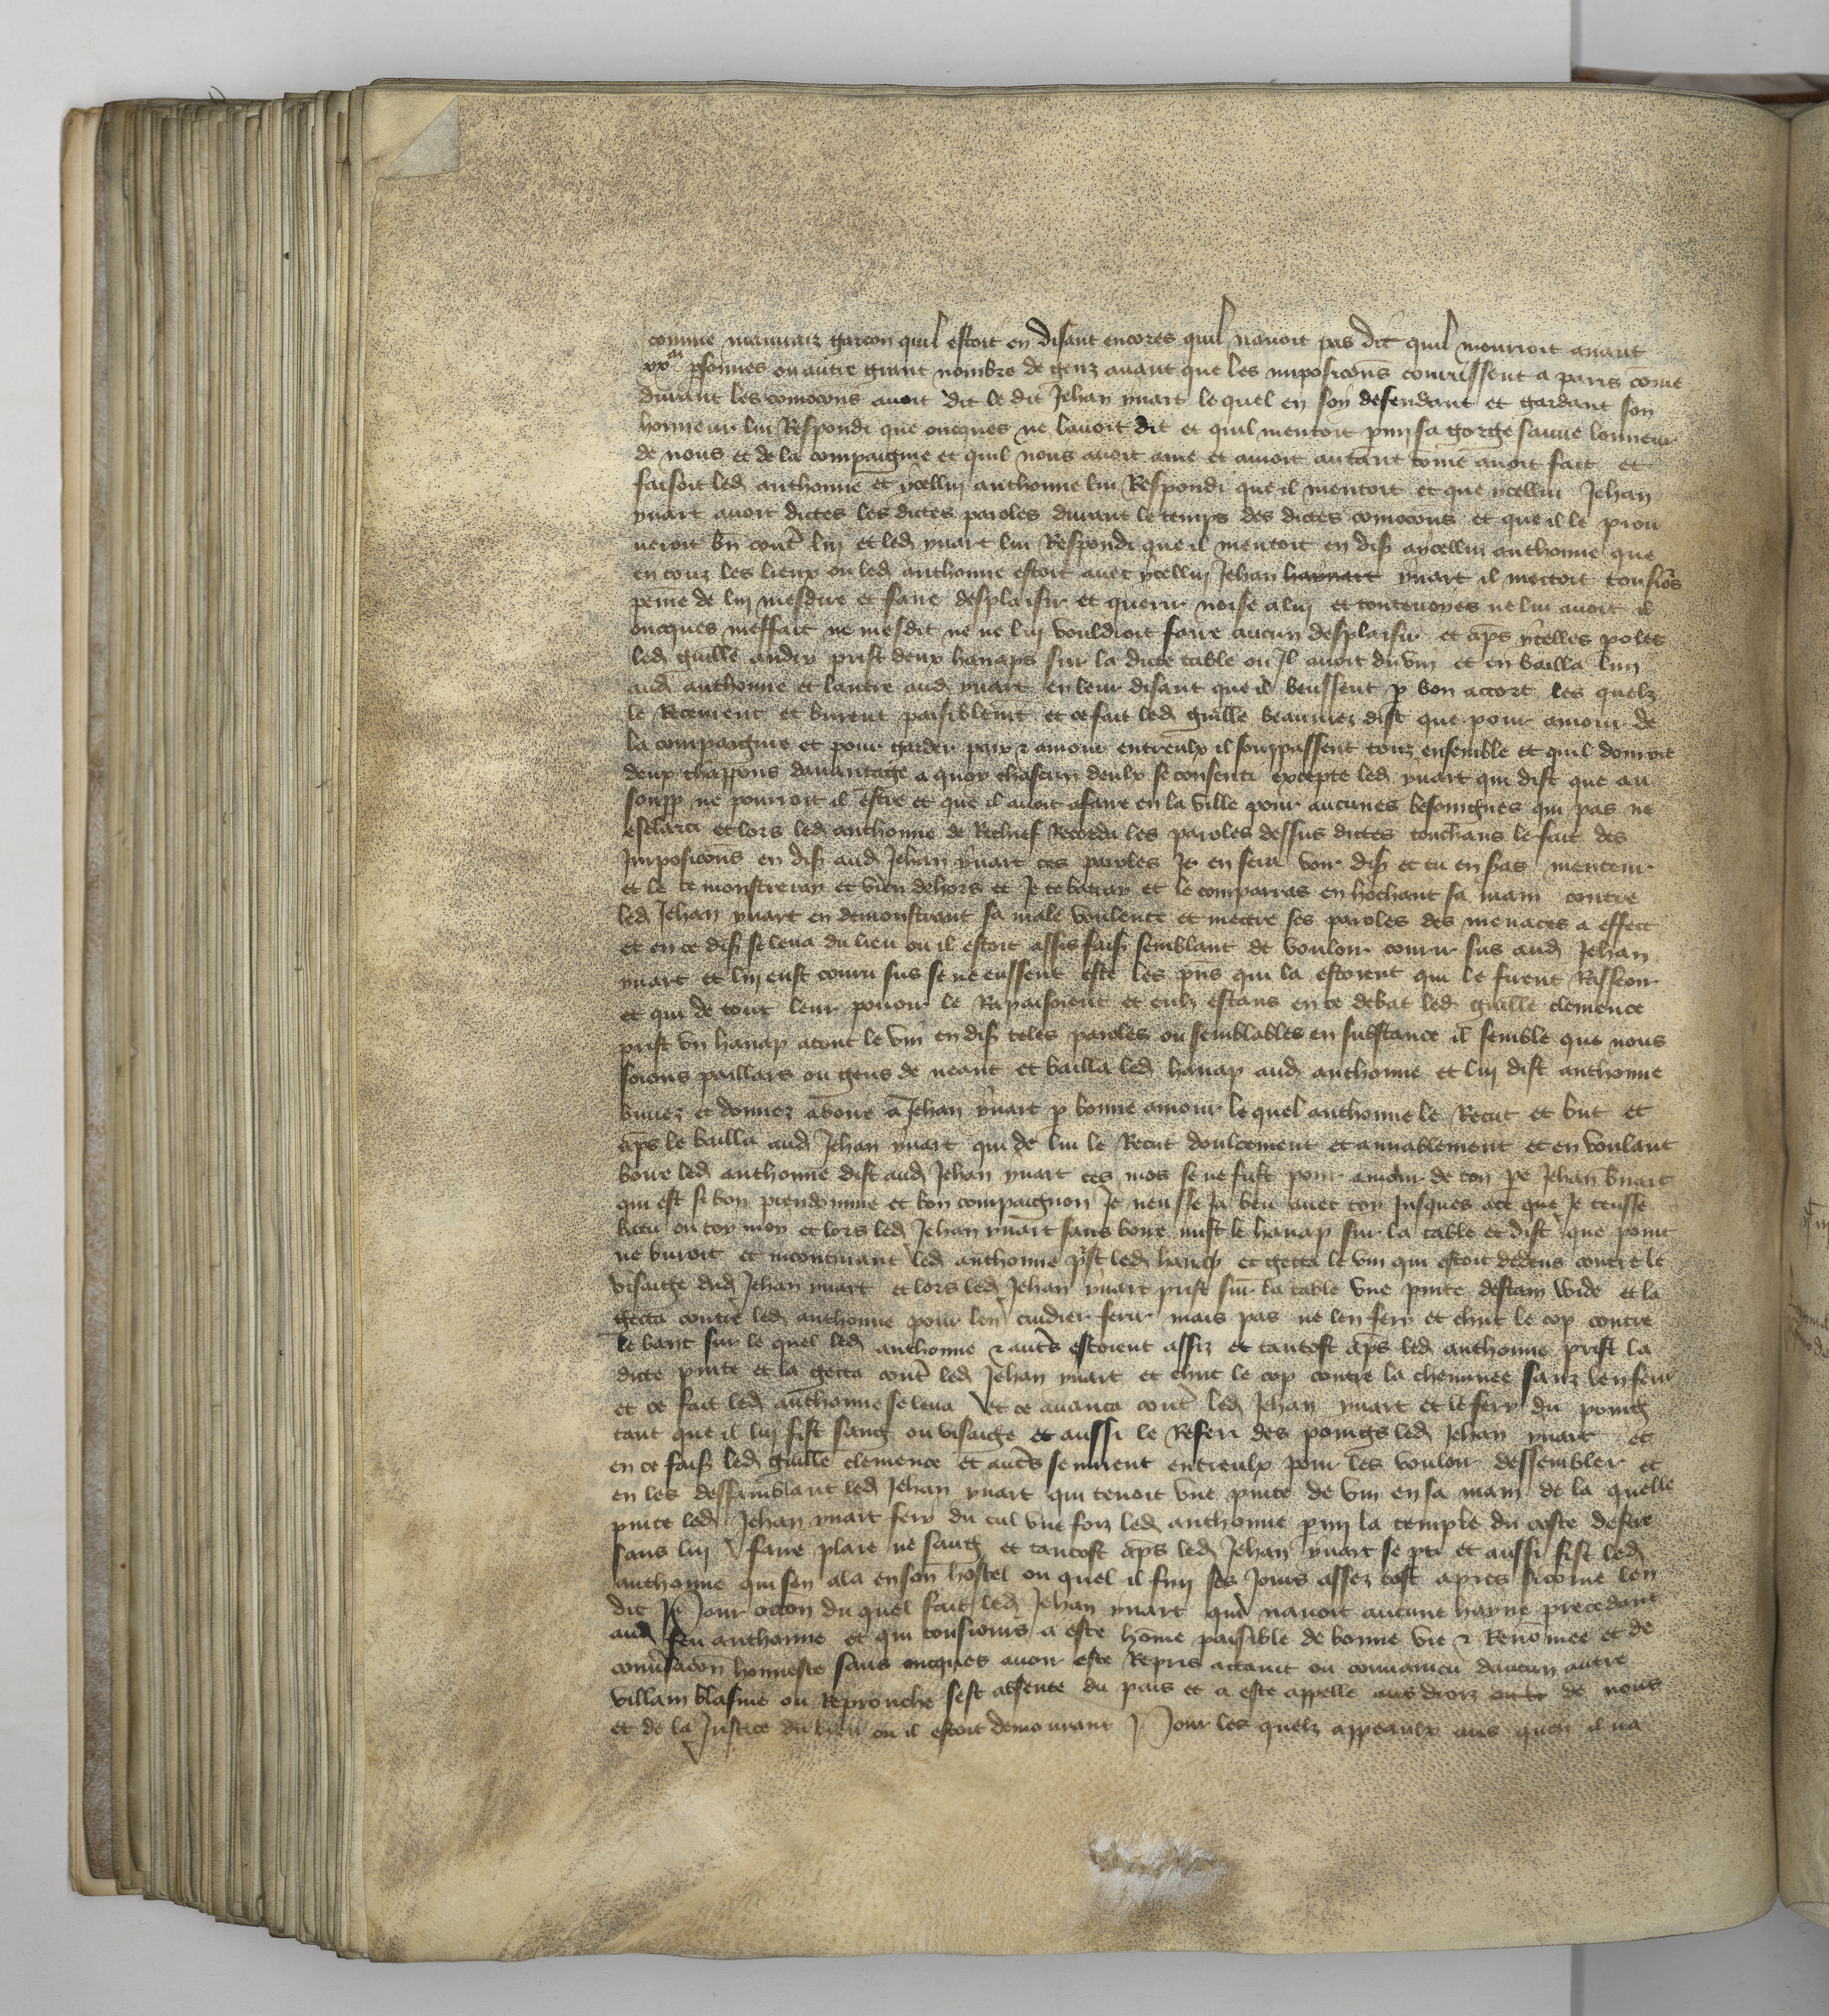 comme mauvaiz garcon quil estoit en disant encores quil navoit pas dit quil mourroit avant
xxm psonnes ou autre grant nombre de genz avant que les imposicons courussent a paris come
durant les comocons avoit dit le dit Jehan yvart le quel en soy defendant et gardant son
honneur lui Respondi que oncques ne lavoit dit et quil mentoit pmy sa gorge sauve lonneur
de nous et de la compaignie et quil nous avoit ame et amoit autant come avoit fait et
faisoit led anthonne et ycellui anthonne lui Respondi que il mentoit et que ycellui Jehan
yvart avoit dictes les dictes paroles durant le temps des dictes comocons et que il le prou
veroit bn contr luy et led yvart lui Respondi que il mentoit en dis aycellui anthonne que
en touz les lieux ou led anthonne estoit avec ycelluy Jehan yvart il mectoit tousiours
peine de luy mesdire et faire desplaisir et querir noise a luy et toutevoyes ne lui avoit il
oncques meffait ne mesdit ne ne luy vouldroit faire aucun desplaisir et aps ycelles poles
led guille andry prist deux hanaps sur la dicte table ou Il avoit du vin et en bailla lun
aud anthonne et lautre aud yvart en leur disant que il beussent p bon accort les quelz
le Receurent et burent paisiblemt et ce fait led guille beaumez dist que pour amour de
la compaignie et pour garder paix & amour entreulx il souppassent touz ensemble et quil donrroit
deux chappons davantage a quoy chascun deulx se consenti excepte led yvart qui dist que au
soupp ne pourroit il estre et que il avoit afaire en la ville pour aucunes besoingnes qui pas ne
esclarci et lors led anthonne de Rechief Recorda les paroles dessus dictes touchans le fait des
Imposicons en dis aud Jehan yvart ces paroles Je en scui voir dis et tu en seras menteur
et le te monstreray et vien dehors et Je te batray et le comparras en hochant sa main contre
led Jehan yvart en demonstrant sa male voulente et mectre ses paroles des menaces a effect
et en ce dis se leva du lieu ou il estoit assis fais semblant de vouloir courir sus aud Jehan
yvart et luy eust couru sus se ne eussent este les pns qui la estoient qui le firent Rasseoir
et qui de tout leur povoir le Rapaisoient et eulx estans en ce debat led guille clemence
prist un hanap atout le vin en dis teles paroles ou semblables en substance il semble que nous
soions paillars ou gens de neant et bailla led hanap aud anthonne et luy dist anthonne
buvez et donnez aboire a Jehan yvart p bonne amour le quel anthonne le Recut et but et
aps le bailla aud Jehan yvart qui de lui le Recut doulcement et amiablement et en voulant
boire led anthonne dist aud Jehan yvart ces mos se ne fust pour amour de ton pe Jehan yvart
qui est si bon preudomme et bon compaignon Je neusse Ja beu avec toy Jusques ace que Je teusse
batu ou toy moy et lors led Jehan yvart sans boire mist le hanap sur la table et dist que point
ne buroit et incontinant led anthonne prist led hanap et getta le vin qui estoit dedens contre le
visaige dud Jehan yvart et lors led Jehan yvart prist sur la table une pinte destain wide et la
getta contre led anthonne pour len cuidier ferir mais pas ne len feri et chut le cop contre
le banc sur le quel led anthonne & autrs estoient assiz et tantost aps led anthonne prist la
dicte pinte et la getta contr led Jehan yvart et chut le cop contre la cheminee sanz len ferir
et ce fait led anthonne se leva et ce avanca contr led Jehan yvart et le fery du poing
tant que il luy fist sang ou visaige et aussi le Referi des poings led Jehan yvart et
en ce fais led guille clemence et autrs se mirent entreulx pour les vouloir dessembler et
en les dessemblant led Jehan yvart qui tenoit une pinte de vin en sa main de la quelle
pinte led Jehan yvart fery du cul une foiz led anthonne pmy la temple du coste destre
sans luy faire plaie ne sang et tantost aps led Jehan yvart se pti et aussi fist led
anthonne qui sen ala en son hostel ou quel il fina ses Jours assez tost apres si come len
dit Pour occon du quel fait led Jehan yvart qui navoit aucune hayne precedant
aud feu anthonne et qui tousiours a este home paisible de bonne vie & Renomee et de
convsacon honneste sans oncques avoir este Repris actaint ou convaincu daucun autre
villain blasme ou Reprouche sest absente du pais et a este appelle aus droiz de nous
et de la Justice du lieu ou il estoit demourant Pour les quelx appeaulx aus quelz il na